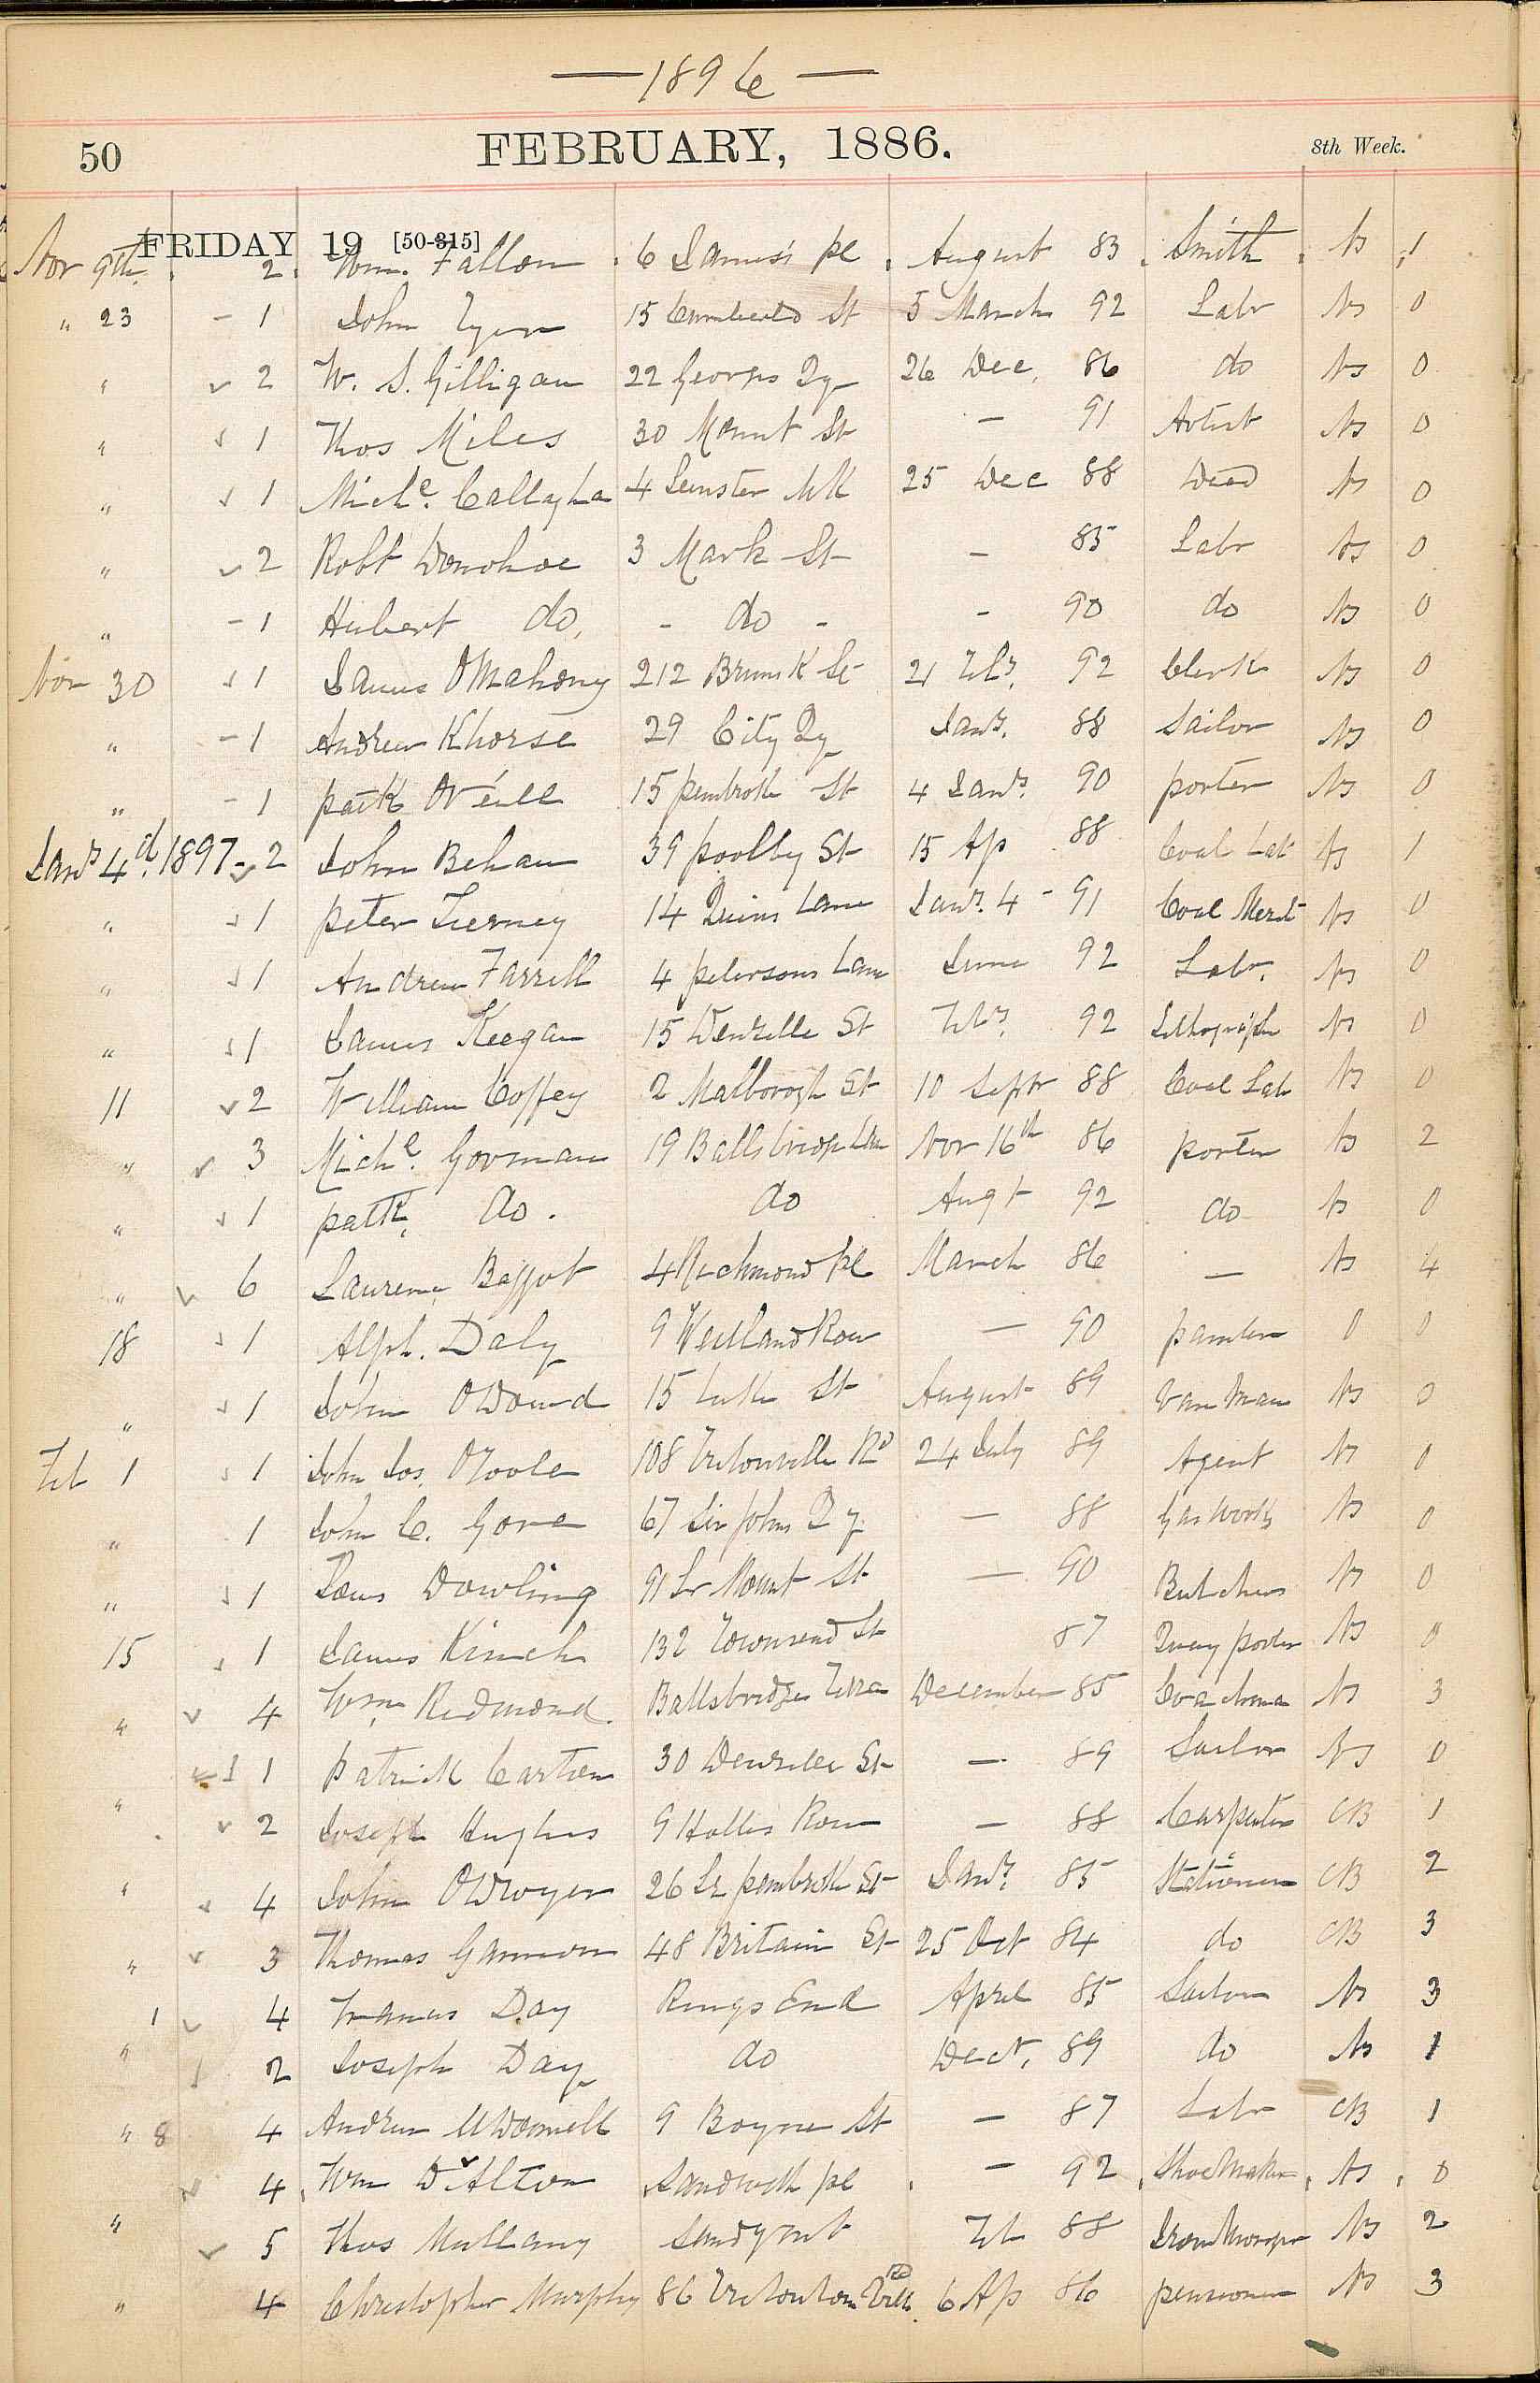 — 1896 —
50 FEBRUARY, 1886. 8th Week.
FRIDAY 19 [50-315]
Nov 9th 2 Wm. Fallon 6 James's pl August 83 Smith NS 1
" 23 - 1 John 15 Cumberld St 5 March 92 Labr NS 0
" ✓ 2 W. J. Gilligan 22 Georges Qy 26 Dec. 86 do NS 0
" ✓ 1 Thos Miles 30 Mount St - 91 Artist NS 0
" ✓ 1 Michl. Callagha 4 Leinster Mk 25 Dec 88 Dead NS 0
" ✓ 2 Robt Donohoe 3 Mark St - 85 Labr NS 0
" - 1 Hubert do. - do - - 90 do NS 0
Nov 30 ✓ 1 James OMahony 212 Brunsk St 21 Feby. 92 Clerk NS 0
" - 1 Andrew Khorse 29 City Qy Jany. 88 Sailor NS 0
" - 1 patk O'Neill 15 pembroke St 4 Jany. 90 porter NS 0
Jany 4th. 1897 - ✓ 2 John Behan 39 poolbg St 15 Ap 88 Coal Lab NS 1
" ✓ 1 peter Tierney 14 Quins Lane Jany. 4 - 91 Coal Mercht NS 0
" ✓ 1 Andrew Farrell 4 petersons Lane June 92 Labr. NS 0
" ✓ 1 James Keegan 15 Denzille St Feby. 92 Lithograph NS 0
11 ✓ 2 William Coffey 2 Malborogh St 10 Septr 88 Coal Lab NS 0
" ✓ 3 Michl. Gorman 19 Ballsbridge Lane Nov 16th 86 porter NS 2
" ✓ 1 patk. do. do Augt 92 do NS 0
" ✓ 6 Laurence Baggot 4 Richmond pl March 86 — NS 4
18 ✓ 1 Alph. Daly 9 Westland Row — 90 painter 0 0
" ✓ 1 John ODowd 15 Luke St August 89 Van Man NS 0
Feb 1 ✓ 1 John Jos. OToole 108 Tritonville Rd 24 July 89 Agent NS 0
" 1 John C. Gore 67 Sir Johns Qy — 88 Gas Works NS 0
" ✓ 1 Dowling 91 Lr Mount St — 90 Butchers NS 0
15 ✓ 1 James Kinch 132 Townsend St 87 Quay porter NS 0
" ✓ 4 Wm. Redmond. Ballsbridge Terrce December 85 Coachman NS 3
" 1 Patrick 30 Denzille St — 89 Sailor NS 0
" ✓ 2 Joseph Hughes 9 Holles Row — 88 Carpenter CB 1
" ✓ 4 John ODwyer 26 Lr pembrok St Jany. 85 Stationer CB 2
" ✓ 3 Thomas Gannon 48 Britain St 25 Oct 84 do CB 3
1 ✓ 4 Francis Day Rings End April 85 Sailor NS 3
" 2 Joseph Day do Decr. 89 do NS 1
" 8 4 Andrew McDonnell 9 Boyne St — 87 Labr CB 1
✓ 4 Wm D'Alton Sandwith pl — 92 Shoe Maker NS 0
" ✓ 5 Thos Mullany Sandymt Feb 88 Iron Monger NS 2
" 4 Christopher Murphy 86 6 Ap 86 pensioner NS 3